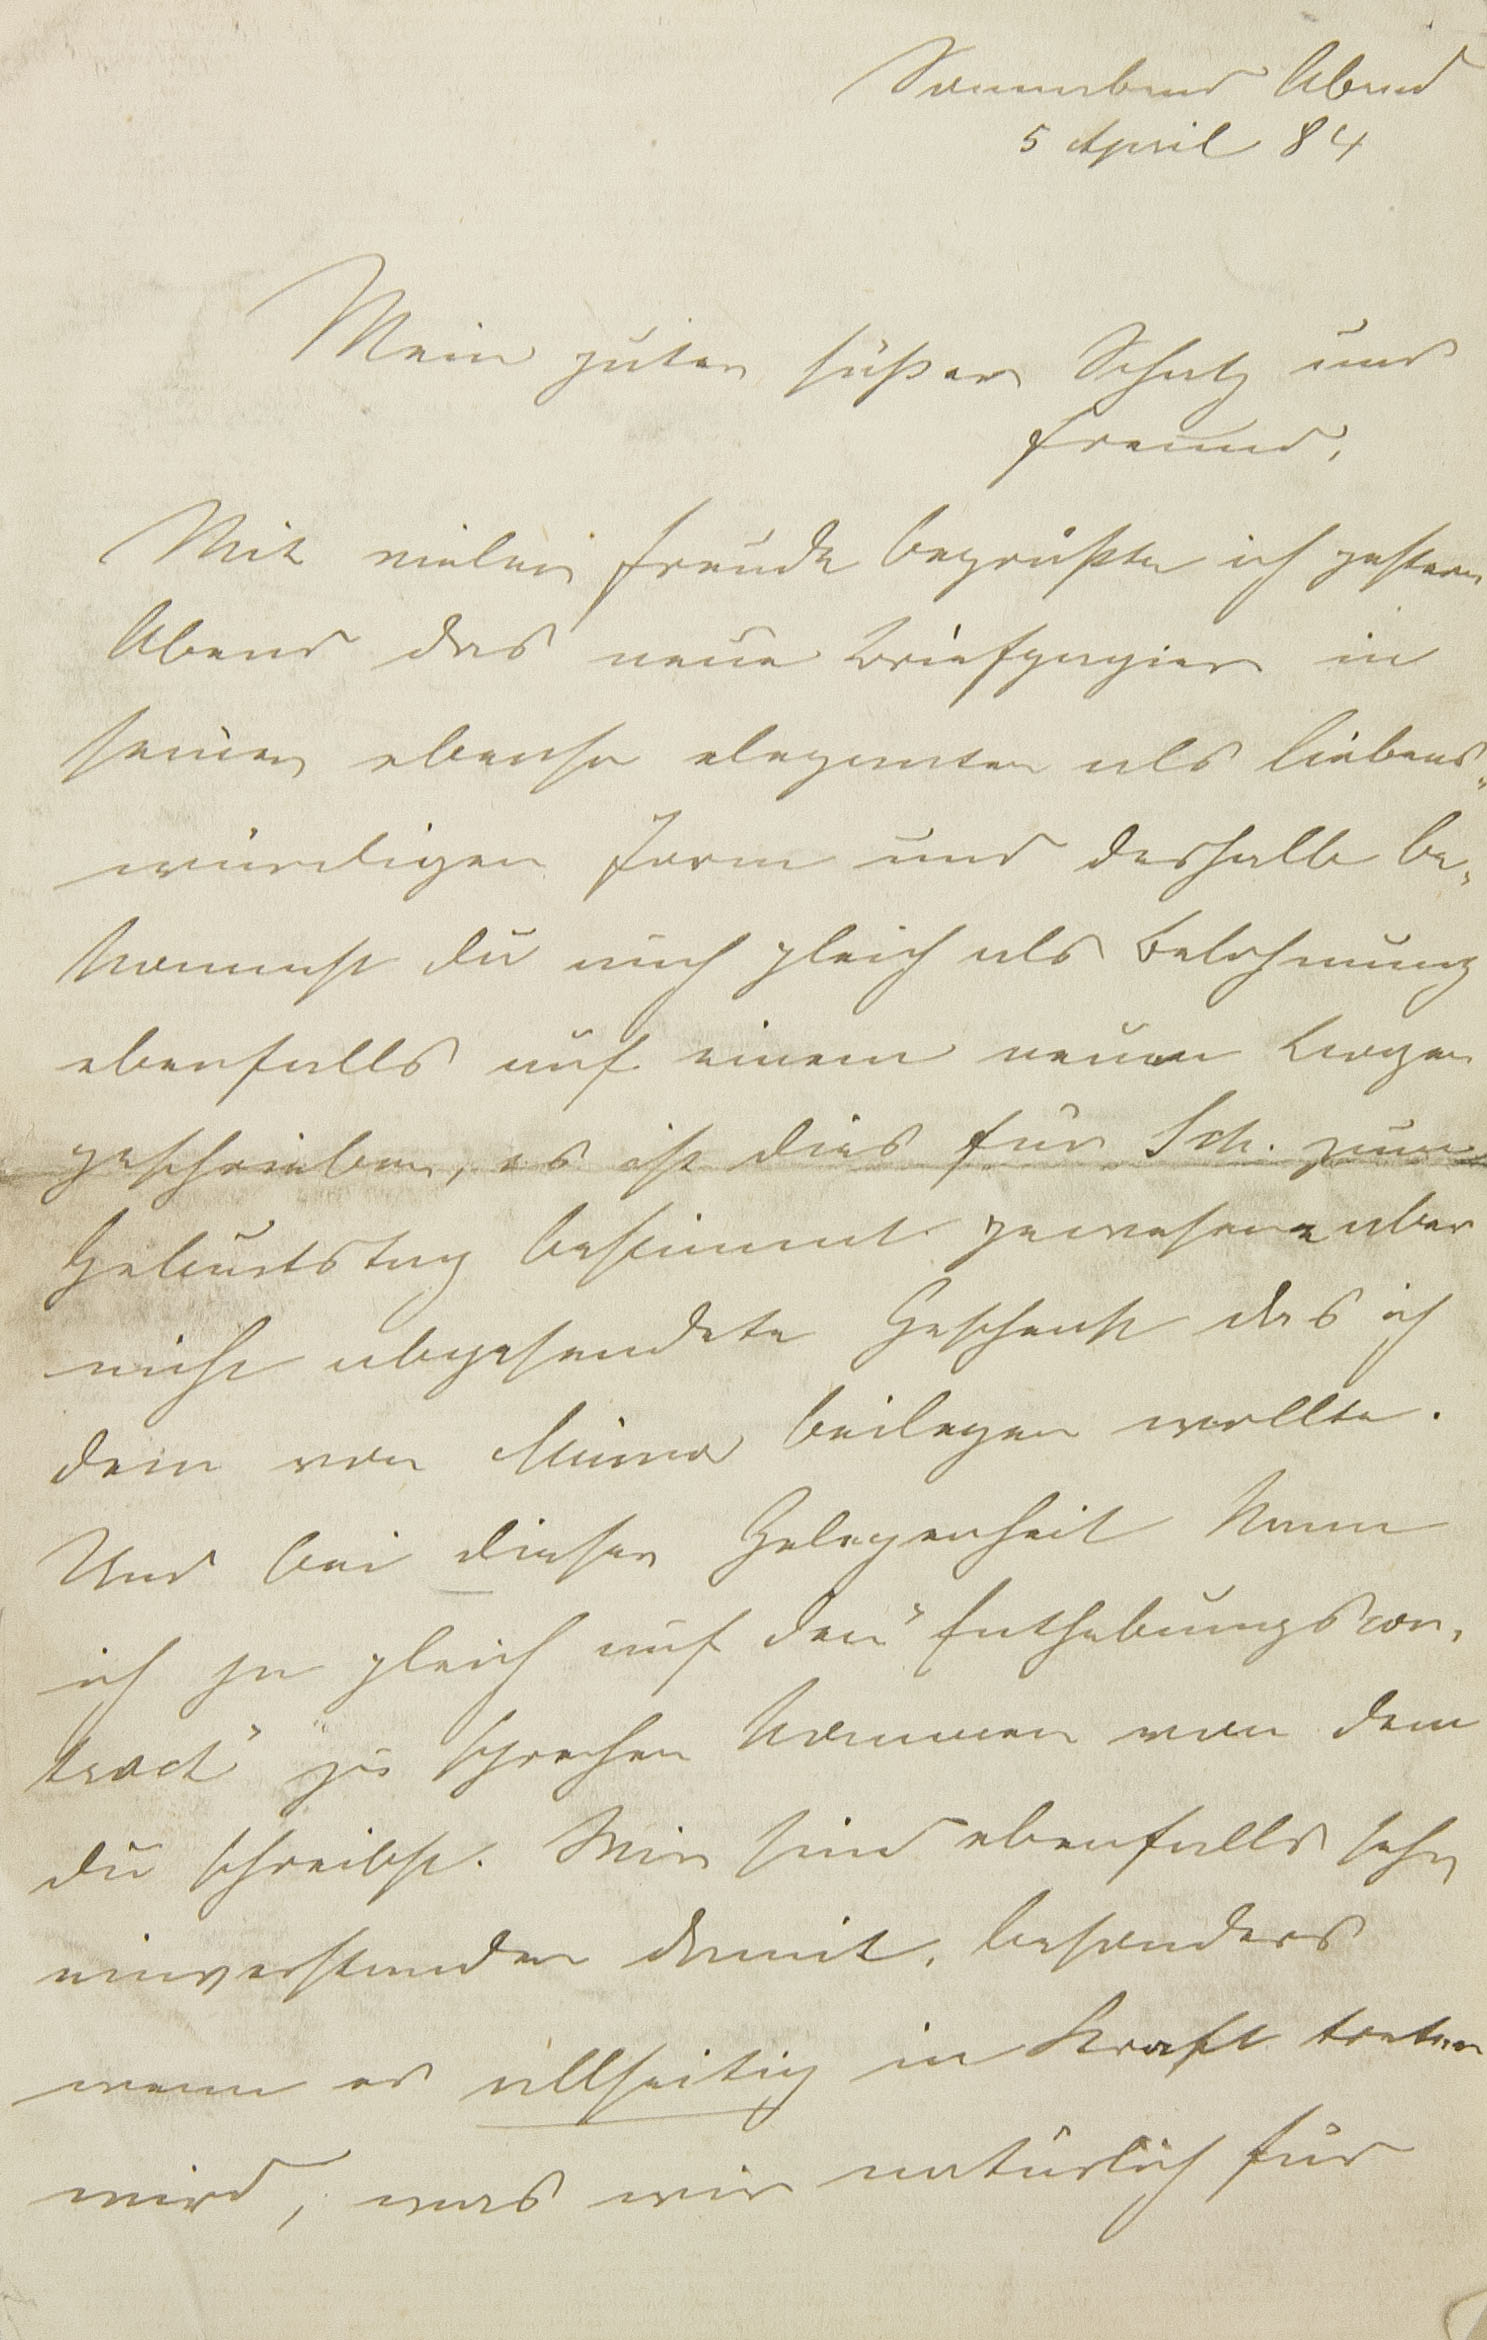 Sonnabend Abend
5 April 84
Mein guter süßer Schatz und
Freund,
Mit vieler Freude begrüßte ich gestern
Abend das neue Briefpapier in
seiner ebenso eleganten als liebens„
würdigen Form und deshalb be„
kommst du auch gleich als Belohnung
ebenfalls auf einem neuen Bogen
geschrieben, es ist dies für Sch. zum
Geburtstag bestimmt gewesene aber
nicht abgesendete Geschenk das ich
dem von Mima beilegen wollte.
Und bei dieser Gelegenheit kann
ich ja gleich auf den "Enthebungscon„
tract" zu sprechen kommen von dem
du schreibst. Wir sind ebenfalls sehr
einverstanden damit, besonders
wenn er allseitig in Kraft treten
wird, was wir natürlich für